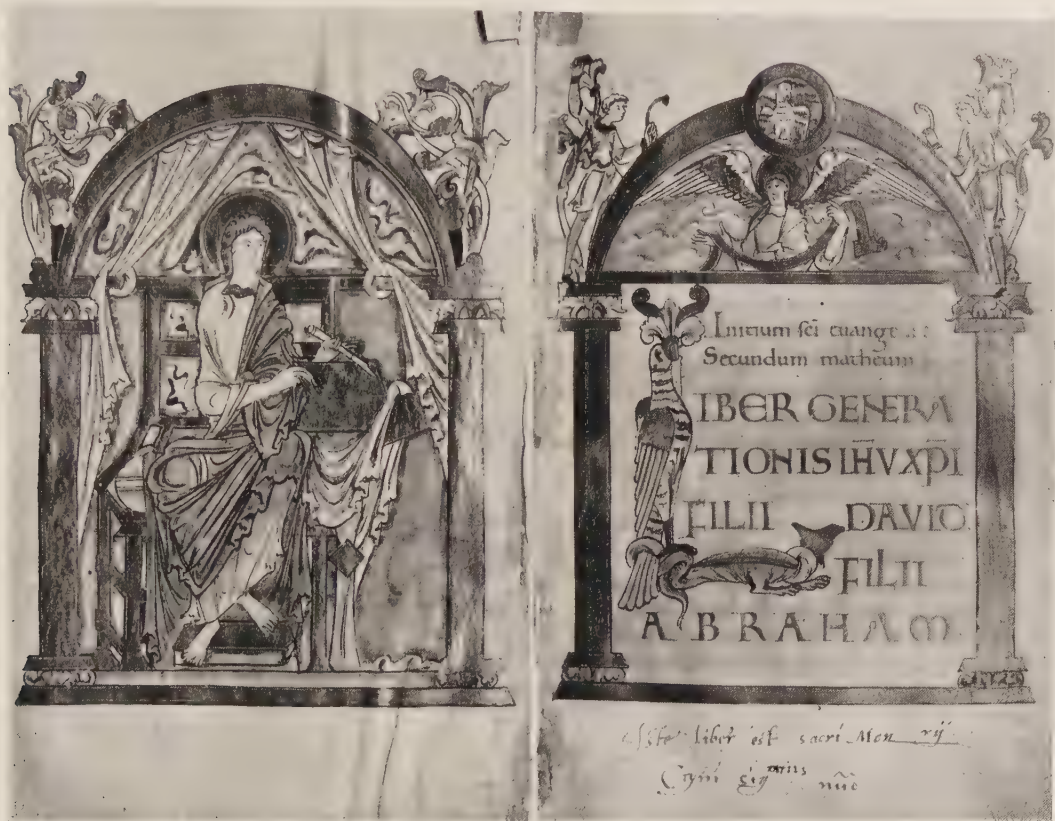 Initium sc̄i euange
Secundum matheum
LIBER GENERA
TIONIS IH̄V XP̄I
FILII DAVID
FILII
ABRAHAM
Iste liber est sacri Mon rij